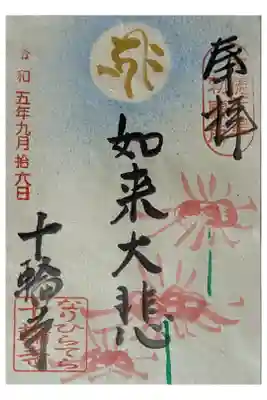 奉拝
如来大悲
十輪寺
なりひらてら
令和五年九月拾六日